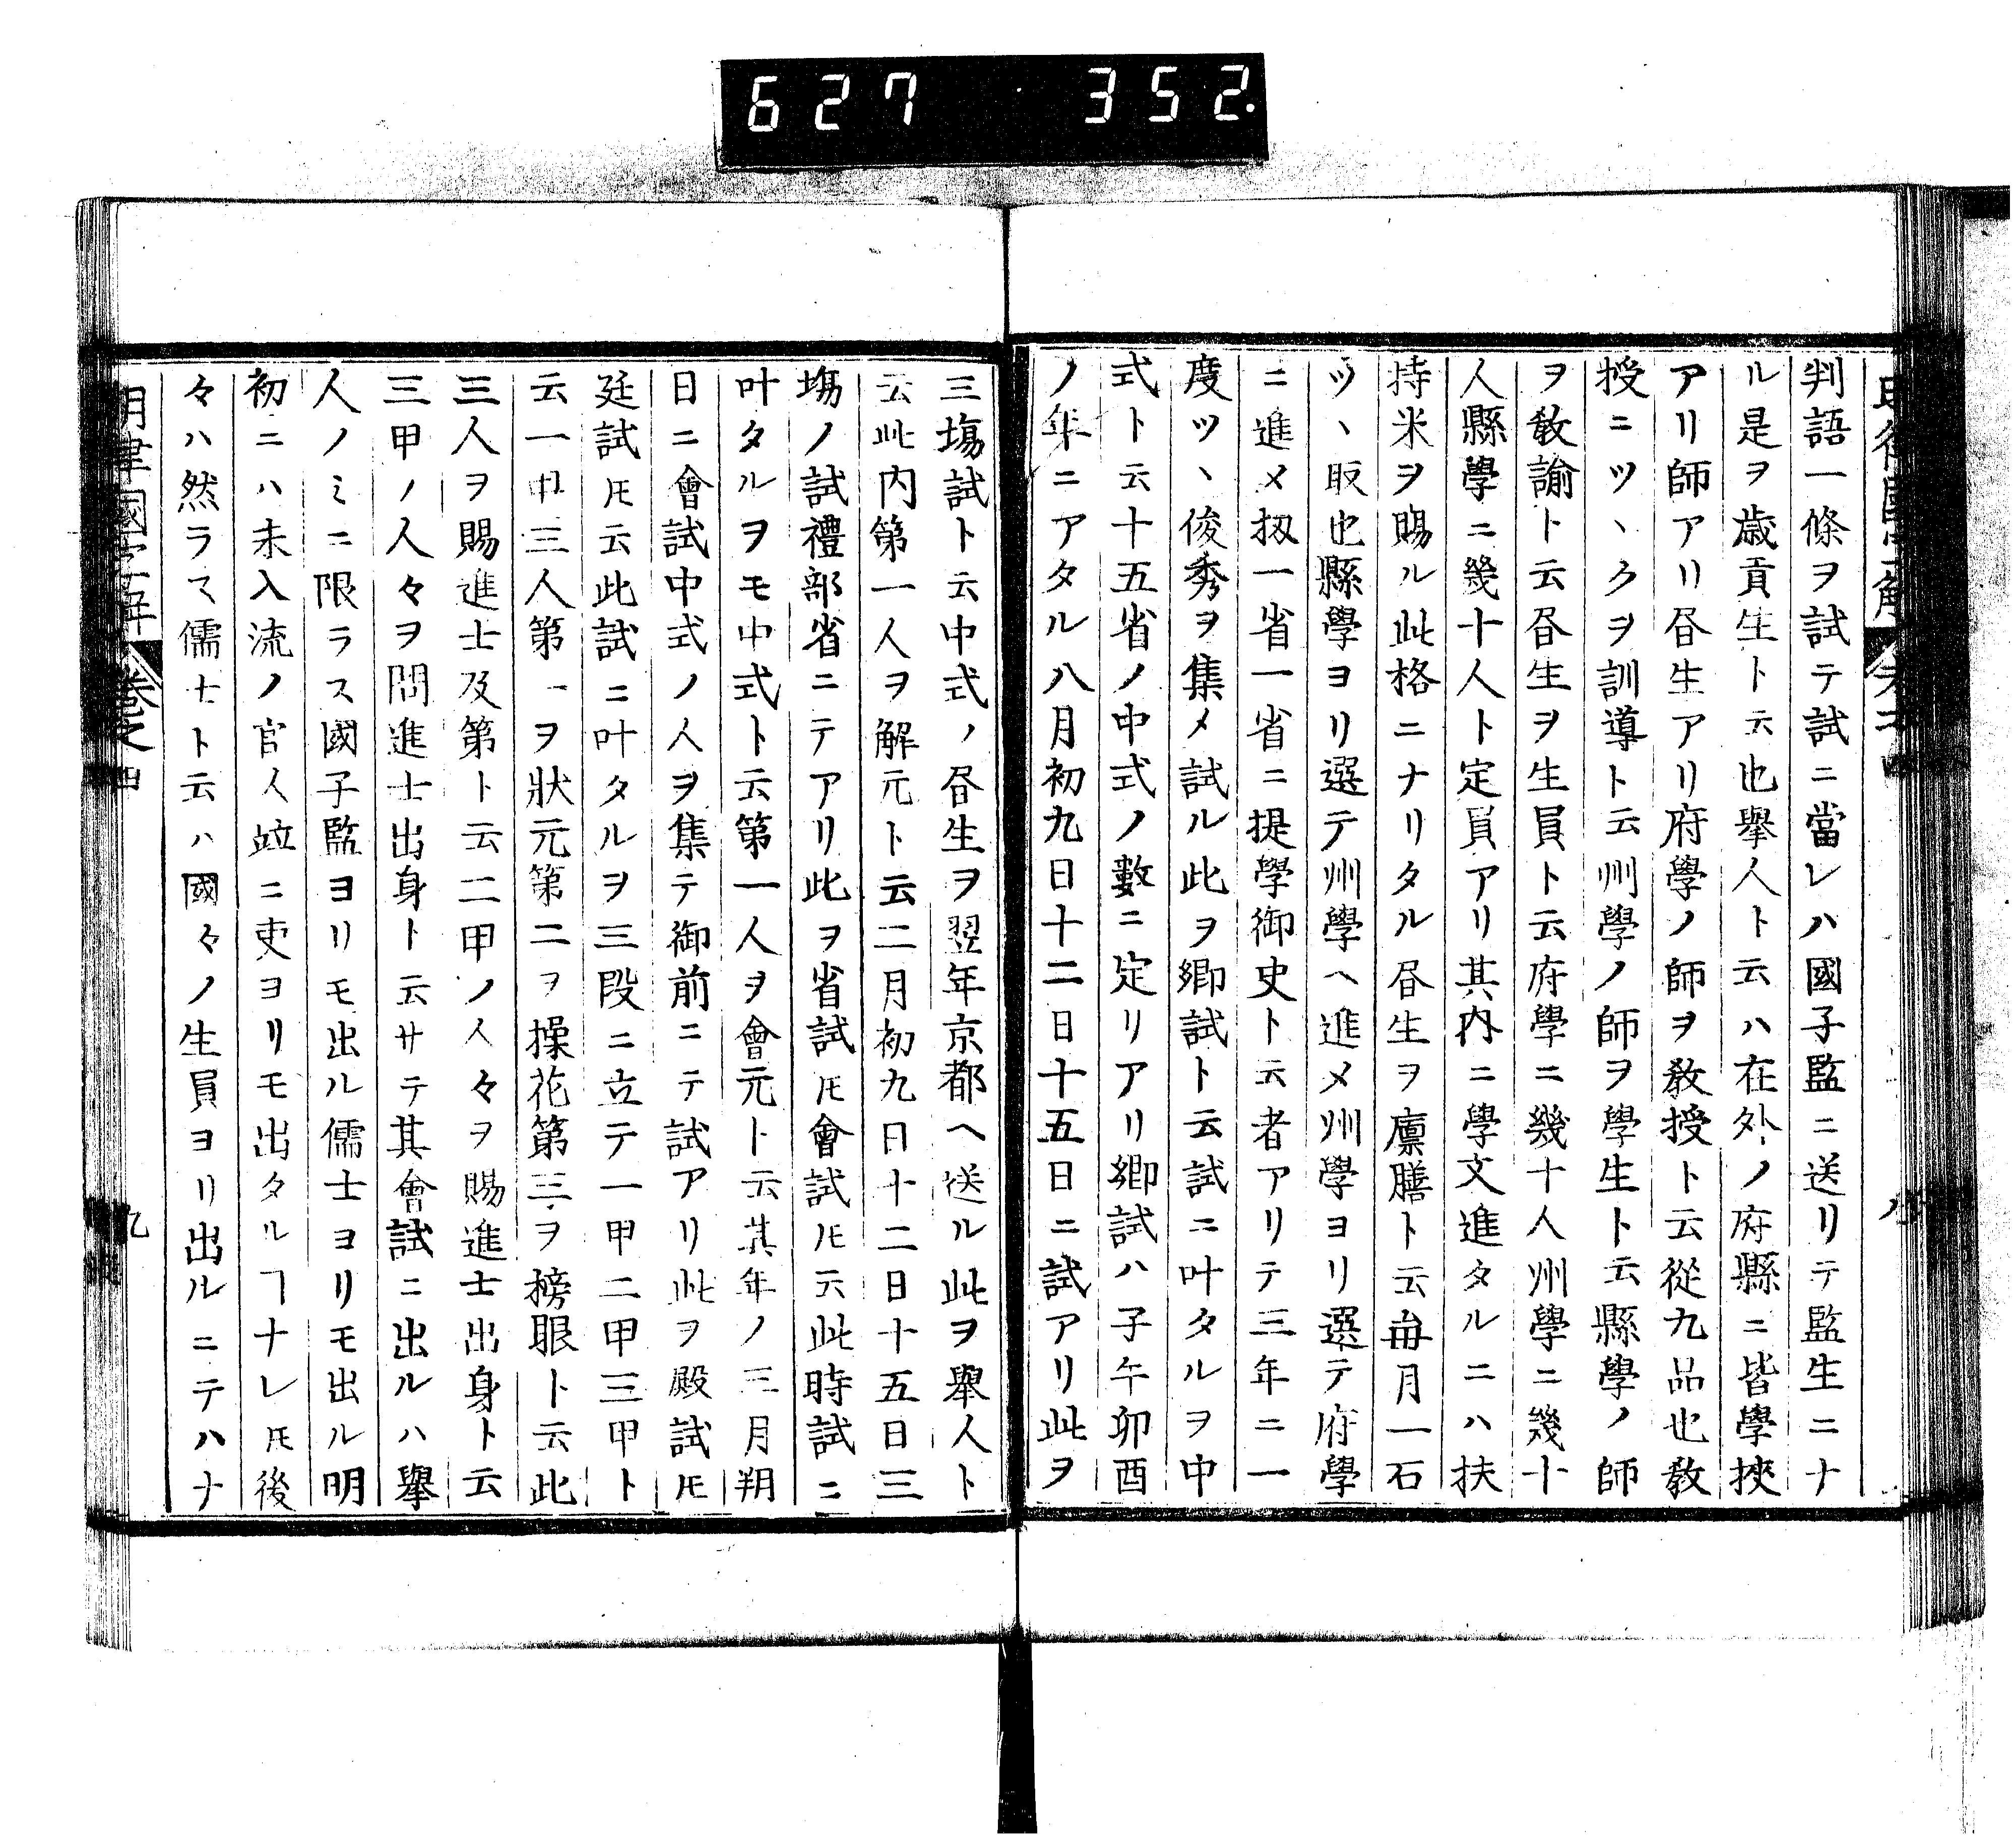 627 352
判語一條ヲ試テ試ニ當レハ國子監ニ送リテ監生ニナ
ル是ヲ歳貢生ト云也擧人ト云ハ在外ノ府縣ニ皆學挍
アリ師アリ昏生アリ府學ノ師ヲ敎授ト云從九品也敎
授ニツヽクヲ訓導ト云州學ノ師ヲ學生ト云縣學ノ師
ヲ敎諭ト云昏生ヲ生員ト云府學ニ幾十人州學ニ幾十
人縣學ニ幾十人ト定員アリ其内ニ學文進タルニハ扶
持米ヲ賜ル此格ニナリタル昏生ヲ廪膳ト云毎月一石
ツヽ取也縣學ヨリ選テ州學ヘ進メ州學ヨリ選テ府學
ニ進メ扨一省一省ニ提學御史ト云者アリテ三年ニ一
度ツヽ俊秀ヲ集メ試ル此ヲ鄕試ト云試ニ叶タルヲ中
式ト云十五省ノ中式ノ數ニ定リアリ鄕試ハ子午卯酉
ノ年ニアタル八月初九日十二日十五日ニ試アリ此ヲ
三塲試ト云中式ノ昏生ヲ翌年京都ヘ送ル此ヲ擧人ト
云此内第一人ヲ解元ト云二月初九日十二日十五日三
塲ノ試禮部省ニテアリ此ヲ省試𪜈會試𪜈云此時試ニ
叶タルヲモ中式ト云第一人ヲ會元ト云其年ノ三月朔
日ニ會試中式ノ人ヲ集テ御前ニテ試アリ此ヲ殿試𪜈
廷試𪜈云此試ニ叶タルヲ三段ニ立テ一甲二甲三甲ト
云一甲三人第一ヲ狀元第二ヲ操花第三ヲ榜眼ト云此
三人ヲ賜進士及第ト云二甲ノ人々ヲ賜進士出身ト云
三甲ノ人々ヲ問進士出身ト云サテ其會試ニ出ルハ擧
人ノミニ限ラス國子監ヨリモ出ル儒士ヨリモ出ル明
初ニハ未入流ノ官人竝ニ吏ヨリモ出タルヿナレ𪜈後
々ハ然ラス儒士ト云ハ國々ノ生員ヨリ出ルニテハナ
明律國字解 卷之四 九